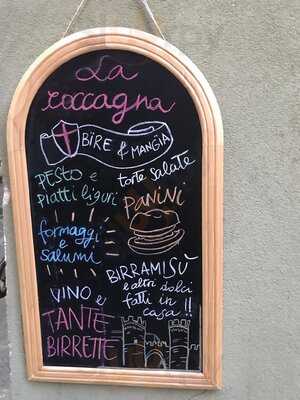 La
coccagna
BIRE & MANGIA
PESTO e
piatti liguri
torte salate
PANINI
formaggi
e
salumi
BIRRAMISÙ
e altri dolci
fatti in
casa !!
VINO e
TANTE
BIRRETTE